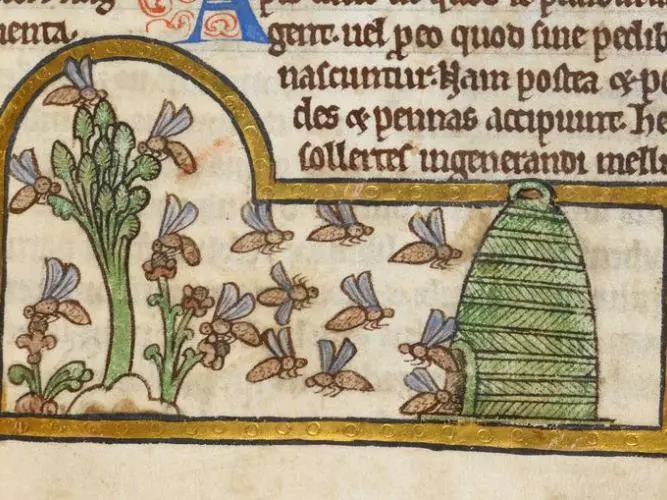 A
menta. gent. uel ꝓ eo quod sine pedib
nascuntur. Nam postea & pe
des & pennas accipiunt. He
sollertes ingenerandi mell